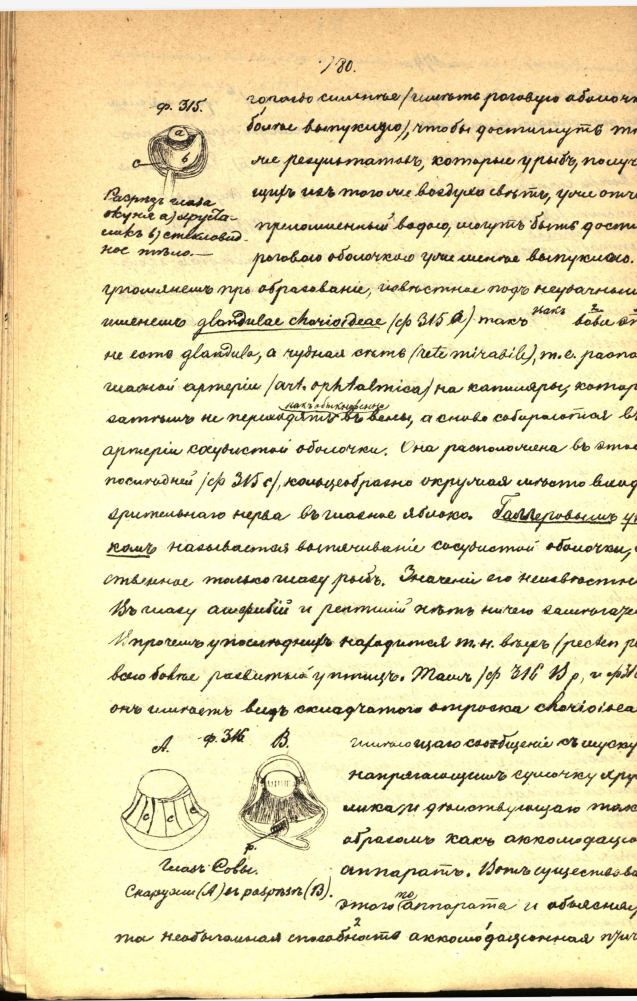 780.
ф. 315.
гораздо сильнее (иметь роговую оболочк
болѣе выпуклую), чтобы достигнуть т
же результатовъ, которые у рыбъ, получ
щихъ изъ того же воздуха свѣтъ, уже
преломленный водою, могутъ быть дости
роговою оболочкою уже менѣе выпуклою.
а
в
с
Разрѣзъ глаза
окуня а) хруста-
ликъ в) стекловид-
ное тѣло.—
упомянемъ про образованіе, извѣстное подъ неудачным
именемъ glandulae chorioideae (ф 315 с) такъ какъ
не есть glandula, а чудная сѣть (rete mirabile), т. е. распа
глазной артеріи (art. ophtalmica) на капиляры, котор
затѣмъ не переходятъ какъ обыкновенно въ вены, а снова собираются в
артеріи сосудистой оболочки. Она расположена въ этой
послѣдней (ф 315 с), кольцеобразно окружая мѣсто вхожд
зрительнаго нерва въ глазное яблоко. Галлеровымъ
комъ называется выпячиваніе сосудистой оболочки,
ственное только глазу рыбъ. Значеніе его неизвѣстно
Въ глазу амфибій и рептилій нѣтъ ничего замѣчате
Впрочемъ у послѣднихъ находится т. н. вѣеръ (pecten
всего болѣе развитый у птицъ. Тамъ (ф 316 В р, и ф
онъ имѣетъ видъ складчатого отростка chorioidea
А. ф. 316 В.
с с
р.
Глазъ Совы.
Снаружи (А) въ разрѣзѣ (В).
имѣющаго сообщеніе съ муску
напрягающимъ сумочку хру
лика, и дѣйствующаго так
образомъ какъ аккомодаціо
аппаратъ. Вотъ существова
этого то аппарата и объясня
та необычайная способность аккомодаціонная